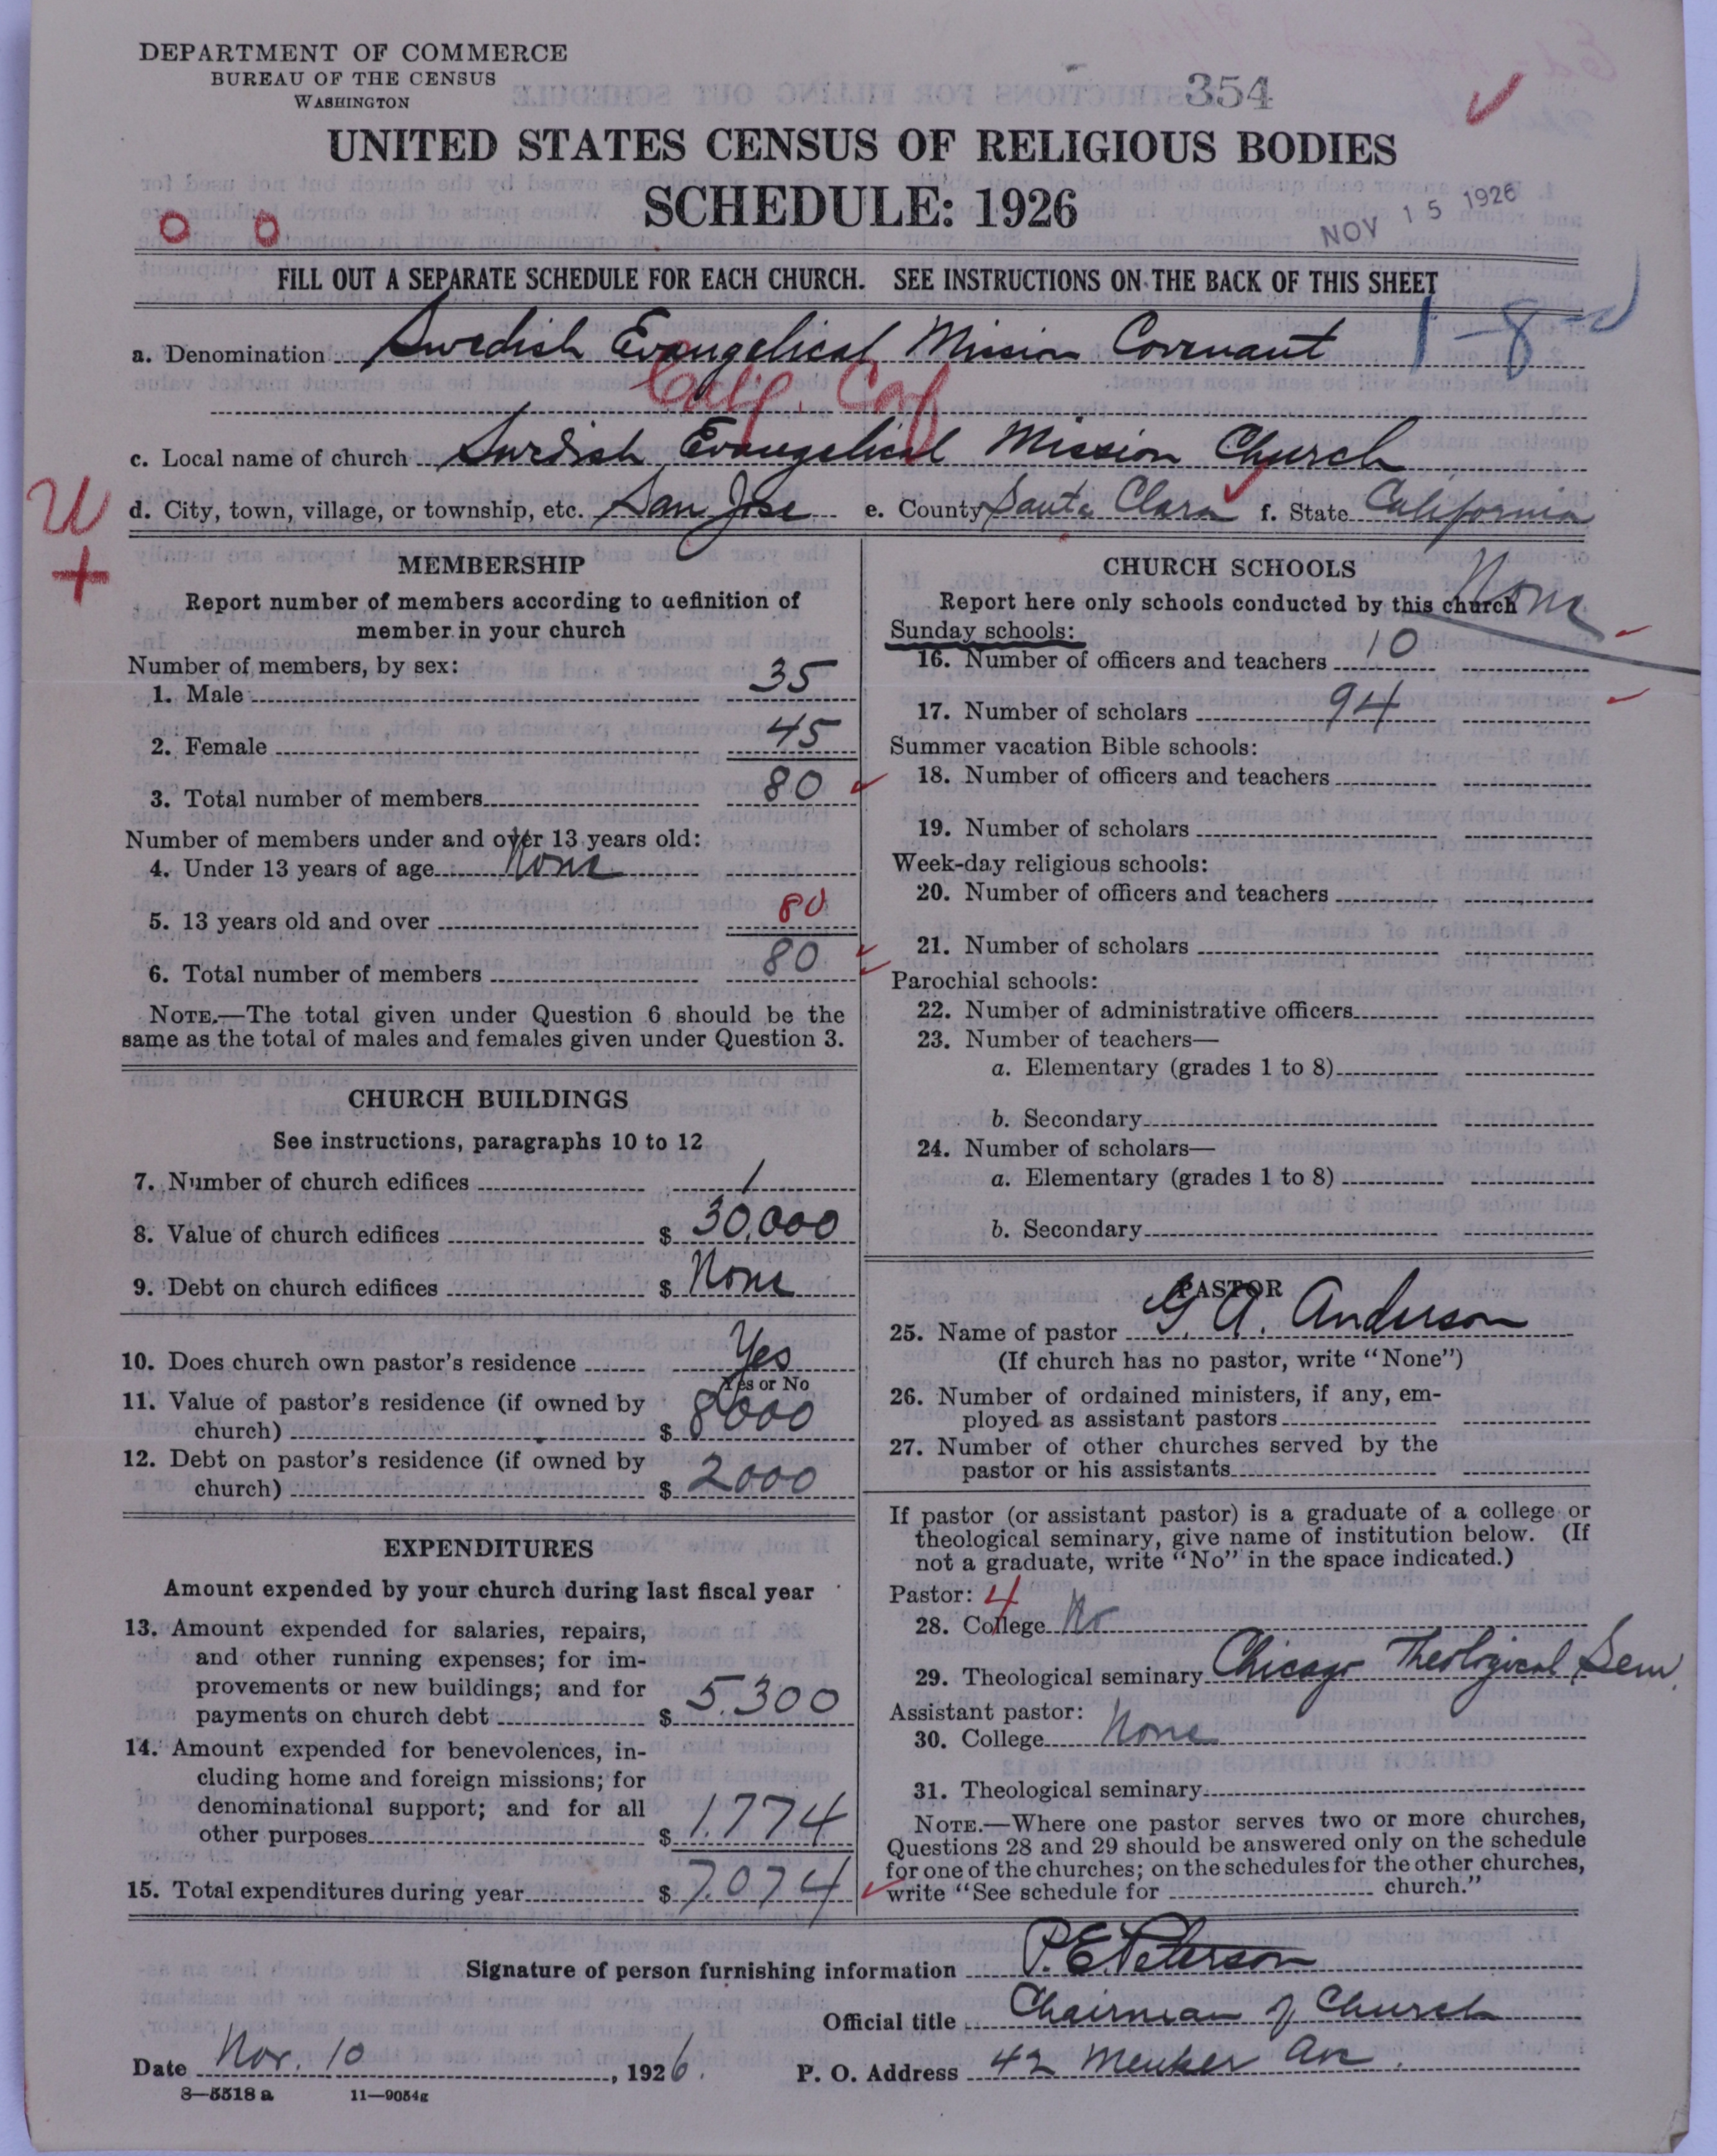 DEPARTMENT OF COMMERCE
BUREAU OF THE CENSUS
WASHINGTON
354
UNITED STATES CENSUS OF RELIGIOUS BODIES
SCHEDULE: 1926
NOV 15 1926
FILL OUT A SEPARATE SCHEDULE FOR EACH CHURCH. SEE INSTRUCTIONS ON THE BACK OF THIS SHEET
1-8
a. Denomination Swedish Evangelical Mission Covenant
Calif. Conf
c. Local name of church Swedish Evangelical Mission Church
d. City, town, village, or township, etc. San Jose e. County Santa Clara f. State California
U
+
MEMBERSHIP
Report number of members according to definition of
member in your church
Number of members, by sex:
1. Male 35
2. Female 45
3. Total number of members 80
Number of members under and over 13 years old:
4. Under 13 years of age None
5. 13 years old and over 80
6. Total number of members 80
NOTE.—The total given under Question 6 should be the
same as the total of males and females given under Question 3.
CHURCH BUILDINGS
See instructions, paragraphs 10 to 12
7. Number of church edifices 1
8. Value of church edifices $ 30,000
9. Debt on church edifices $ None
10. Does church own pastor's residence Yes
Yes or No
11. Value of pastor's residence (if owned by
church) $ 8000
12. Debt on pastor's residence (if owned by
church) $ 2000
EXPENDITURES
Amount expended by your church during last fiscal year
13. Amount expended for salaries, repairs,
and other running expenses; for im-
provements or new buildings; and for
payments on church debt $ 5.300
14. Amount expended for benevolences, in-
cluding home and foreign missions; for
denominational support; and for all
other purposes $ 1.774
15. Total expenditures during year $ 7.074
CHURCH SCHOOLS
None
Report here only schools conducted by this church
Sunday schools:
16. Number of officers and teachers 10
17. Number of scholars 94
Summer vacation Bible schools:
18. Number of officers and teachers
19. Number of scholars
Week-day religious schools:
20. Number of officers and teachers
21. Number of scholars
Parochial schools:
22. Number of administrative officers
23. Number of teachers—
a. Elementary (grades 1 to 8)
b. Secondary
24. Number of scholars—
a. Elementary (grades 1 to 8)
b. Secondary
PASTOR
25. Name of pastor G. A. Anderson
(If church has no pastor, write "None")
26. Number of ordained ministers, if any, em-
ployed as assistant pastors
27. Number of other churches served by the
pastor or his assistants
If pastor (or assistant pastor) is a graduate of a college or
theological seminary, give name of institution below. (If
not a graduate, write "No" in the space indicated.)
Pastor: 4
28. College No
29. Theological seminary Chicago Theological Sem.
Assistant pastor:
30. College None
31. Theological seminary
NOTE.—Where one pastor serves two or more churches,
Questions 28 and 29 should be answered only on the schedule
for one of the churches; on the schedules for the other churches,
write "See schedule for church."
Signature of person furnishing information P. E. Peterson
Official title Chairman of Church
Date Nov. 10, 1926. P. O. Address 42 Menker Av.
8—5518 a 11—9054g